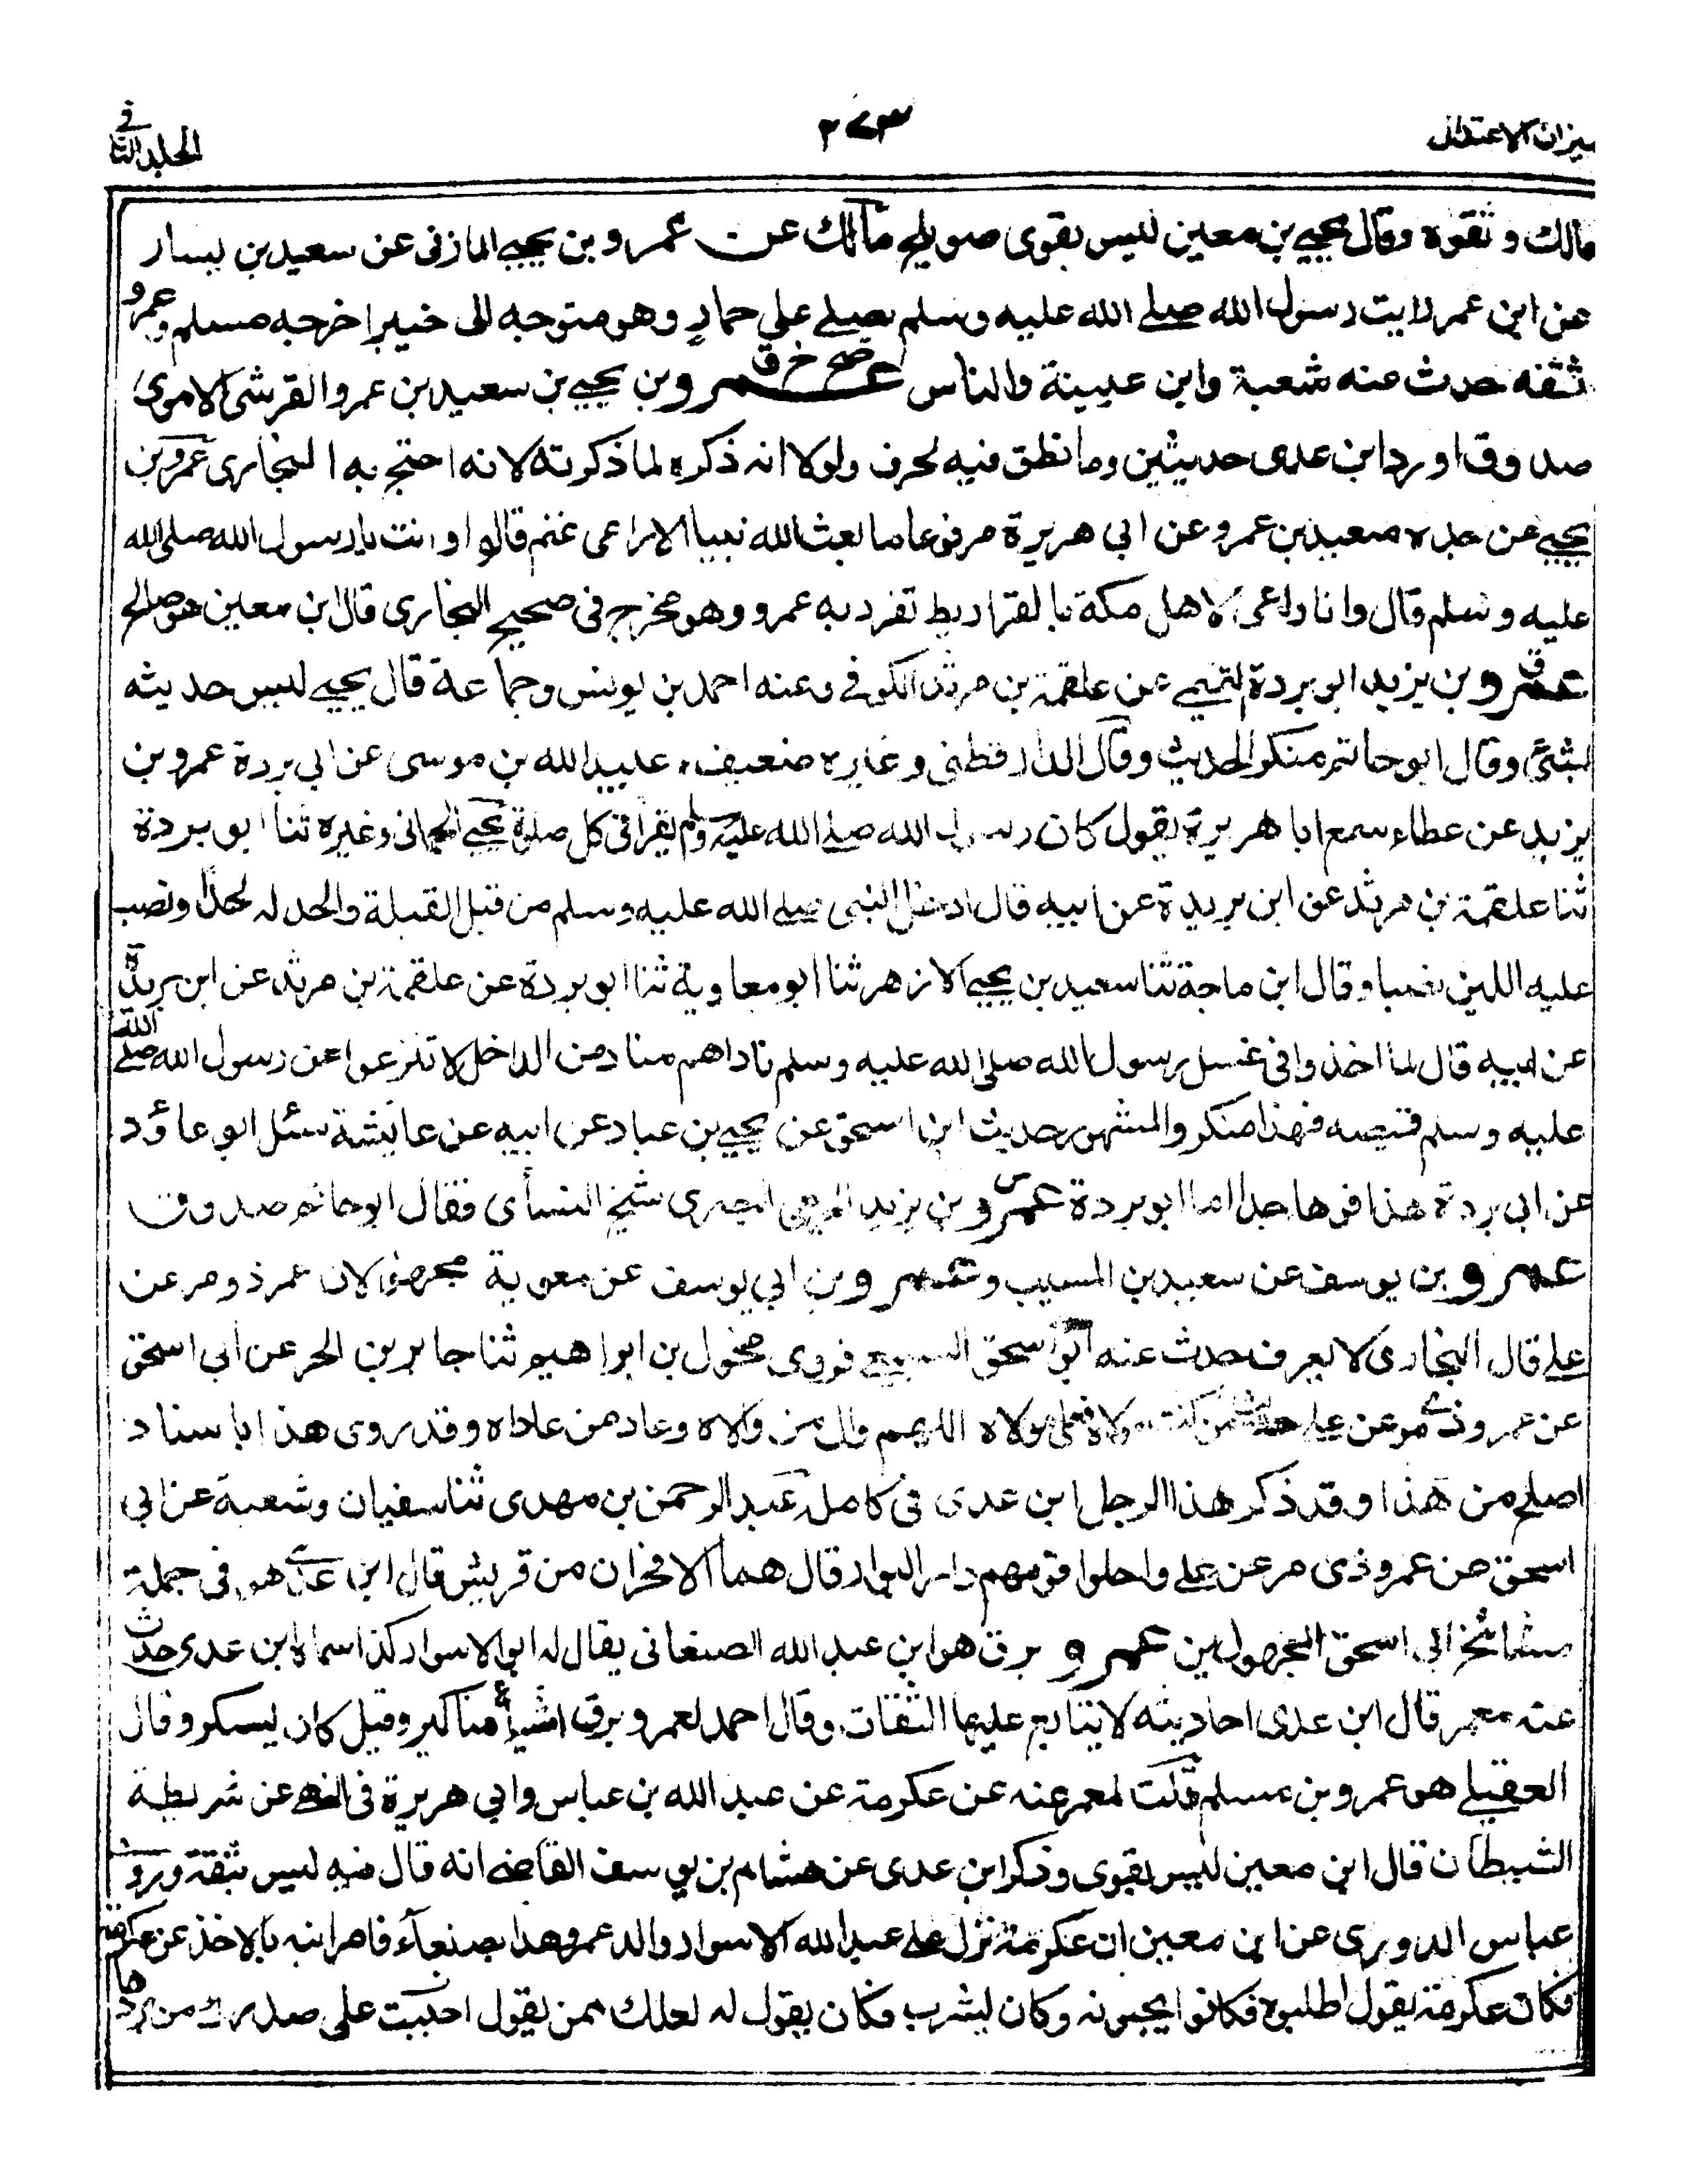 ميزان الاعتدال
٢٧٣
المجلد الثاني
مالك وثقوه وقال يحيى بن معين ليس بقوى صويلح مالك عن عمرو بن يحيى المازنى عن سعيد بن يسار
عن ابن عمر رايت رسول الله صلى الله عليه وسلم يصلى على حمار وهو متوجه الى خيبر اخرجه مسلم وعمرو
ثقه حدث عنه شعبة وابن عيينة والناس صح خ ق عمرو بن يحيى بن سعيد بن عمرو القرشى الاموى
صدوق اورد ابن عدى حديثين وما نطق فيه بحرف ولولا انه ذكره لما ذكرته لانه احتج به البخارى عمرو بن
يحيى عن جده سعيد بن عمرو عن ابى هريرة مرفوعا ما بعث الله نبيا الا راعى غنم قالوا وانت يا رسول الله صلى الله
عليه وسلم قال وانا راعى لاهل مكة بالقراريط تفرد به عمرو وهو مخرج فى صحيح البخارى قال ابن معين هو صالح
ق عمرو بن يزيد ابو بردة التميمى عن علقمة بن مرثد الكوفى وعنه احمد بن يونس وجماعة قال يحيى ليس حديثه
بشئ وقال ابو حاتم منكر الحديث وقال الدارقطنى وغيره ضعيف، عبيد الله بن موسى عن ابى بردة عمرو بن
يزيد عن عطاء سمع ابا هريرة يقول كان رسول الله صلى الله عليه وسلم يقرأ فى كل صلوة يحيى الحمانى وغيره ثنا ابو بردة
ثنا علقمة بن مرثد عن ابن بريدة عن ابيه قال ادخل النبى صلى الله عليه وسلم من قبل القبلة والحد له لحدا ونصب
عليه اللبن نصبا وقال ابن ماجة ثنا سعيد بن يحيى الازهر ثنا ابو معاوية ثنا ابو بردة عن علقمة بن مرثد عن ابن بريدة
عن ابيه قال لما اخذوا فى غسل رسول الله صلى الله عليه وسلم ناداهم مناد من الداخل لا تنزعوا عن رسول الله صلى الله
عليه وسلم قميصه فهذا منكر والمشهور حديث ابن اسحق عن يحيى بن عباد عن ابيه عن عايشة سئل ابو داؤد
عن ابى بردة هذا فوهاه جدا اما ابو بردة س عمرو بن يزيد الجرمى البصرى شيخ النسائى فقال ابو حاتم صدوق
عمرو بن يوسف عن سعيد بن المسيب وعمرو بن ابى يوسف عن معوية مجهولان عمرو ذو مر عن
على قال البخارى لا يعرف حدث عنه ابو اسحق السبيعى فروى مخول بن ابراهيم ثنا جابر بن الحر عن ابى اسحق
عن عمرو ذى مر عن على حديث من كنت مولاه فعلى مولاه اللهم وال من والاه وعاد من عاداه وقد روى هذا باسناد
اصلح من هذا وقد ذكر هذا الرجل ابن عدى فى كامله عبد الرحمن بن مهدى ثنا سفيان وشعبة عن ابى
اسحق عن عمرو ذى مر عن على واحلوا قومهم دار البوار قال هما الافخران من قريش قال ابن عدى هو فى جملة
مشائخ ابى اسحق المجهولين عمرو برق هو ابن عبد الله الصنعانى يقال له ابو الاسوار كذا سماه ابن عدى حدث
عنه معمر قال ابن عدى احاديثه لا يتابع عليها الثقات وقال احمد لعمرو برق اشياء مناكير وقيل كان يسكر وقال
العقيلى هو عمرو بن مسلم قلت لمعمر عنه عن عكرمة عن عبد الله بن عباس وابى هريرة فى النهى عن شريطة
الشيطان قال ابن معين ليس بقوى وذكر ابن عدى عن هشام بن يوسف القاضى انه قال فيه ليس بثقة وروى
عباس الدورى عن ابن معين ان عكرمة نزل على عبد الله الاسوار والد عمرو هذا بصنعاء فامر ابنه بالاخذ عن عكرمة
فكان عكرمة يقول اطلبوه فكانوا يجيبونه وكان يشرب فكان يقول له لعلك ممن يقول